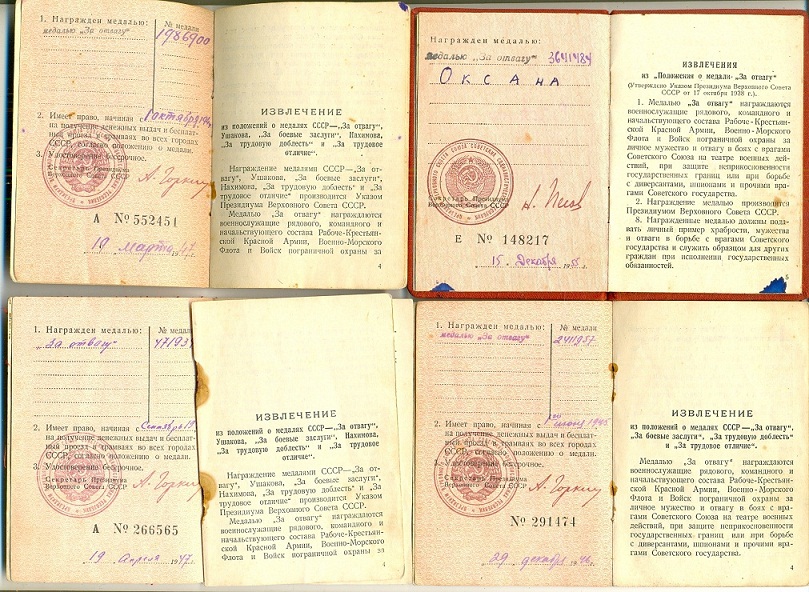 1. Награжден медалью:
№ медали
медалью „За отвагу"
1986900
2. Имеет право, начиная с
1 октября
на получение денежных выдач и бесплат-
ный проезд в трамваях во всех городах
СССР, согласно положению о медали.
3. Удостоверение бессрочное.
Секретарь Президиума
Верховного Совета СССР
А. Горкин
А № 552451
19 марта 1947 г.
ИЗВЛЕЧЕНИЕ
из положений о медалях СССР—„За отвагу",
Ушакова, „За боевые заслуги", Нахимова,
„За трудовую доблесть" и „За трудовое
отличие".
Награждение медалями СССР—„За от-
вагу", Ушакова, „За боевые заслуги",
Нахимова, „За трудовую доблесть" и „За
трудовое отличие" производится Указом
Президиума Верховного Совета СССР.
Медалью „За отвагу" награждаются
военнослужащие рядового, командного и
начальствующего состава Рабоче-Крестьян-
ской Красной Армии, Военно-Морского
Флота и Войск пограничной охраны за
4
Награжден медалью:
медалью „За отвагу" 3641484
Оксана
Секретарь Президиума
Верховного Совета СССР
Е № 148217
15 декабря 195 г.
ИЗВЛЕЧЕНИЯ
из „Положения о медали „За отвагу"
(Утверждено Указом Президиума Верховного Совета
СССР от 17 октября 1938 г.).
1. Медалью „За отвагу" награждаются
военнослужащие рядового, командного и
начальствующего состава Рабоче-Крестьян-
ской Красной Армии, Военно-Морского
Флота и Войск пограничной охраны за
личное мужество и отвагу в боях с врагами
Советского Союза на театре военных дей-
ствий, при защите неприкосновенности
государственных границ или при борьбе
с диверсантами, шпионами и прочими вра-
гами Советского государства.
2. Награждение медалью производится
Президиумом Верховного Совета СССР.
8. Награжденные медалью должны пода-
вать личный пример храбрости, мужества
и отваги в борьбе с врагами Советского
Союза и служить образцом для других
граждан при исполнении государственных
обязанностей.
5
1. Награжден медалью:
№ медали
„За отвагу"
2. Имеет право, начиная с
Сентябрь 19
на получение денежных выдач и бесплат-
ный проезд в трамваях во всех городах
СССР, согласно положению о медали.
3. Удостоверение бессрочное.
Секретарь Президиума
Верховного Совета СССР
А. Горкин
А № 266565
19 апреля 1947 г.
ИЗВЛЕЧЕНИЕ
из положений о медалях СССР—„За отвагу",
Ушакова, „За боевые заслуги", Нахимова,
„За трудовую доблесть" и „За трудовое
отличие".
Награждение медалями СССР—„За от-
вагу", Ушакова, „За боевые заслуги",
Нахимова, „За трудовую доблесть" и „За
трудовое отличие" производится Указом
Президиума Верховного Совета СССР.
Медалью „За отвагу" награждаются
военнослужащие рядового, командного и
начальствующего состава Рабоче-Крестьян-
ской Красной Армии, Военно-Морского
Флота и Войск пограничной охраны за
4
1. Награжден медалью:
№ медали
медалью „За отвагу"
2411957
2. Имеет право, начиная с
июля 1945
на получение денежных выдач и бесплат-
ный проезд в трамваях во всех городах
СССР, согласно положению о медали.
3. Удостоверение бессрочное.
Секретарь Президиума
Верховного Совета СССР
А. Горкин
№ 291474
29 декабря 1946 г.
ИЗВЛЕЧЕНИЕ
из положений о медалях СССР—„За отвагу",
„За боевые заслуги", „За трудовую доблесть"
и „За трудовое отличие".
Медалью „За отвагу" награждаются
военнослужащие рядового, командного и
начальствующего состава Рабоче-Крестьян-
ской Красной Армии, Военно-Морского
Флота и Войск пограничной охраны за
личное мужество и отвагу в боях с вра-
гами Советского Союза на театре военных
действий, при защите неприкосновенности
государственных границ или при борьбе
с диверсантами, шпионами и прочими вра-
гами Советского государства.
4